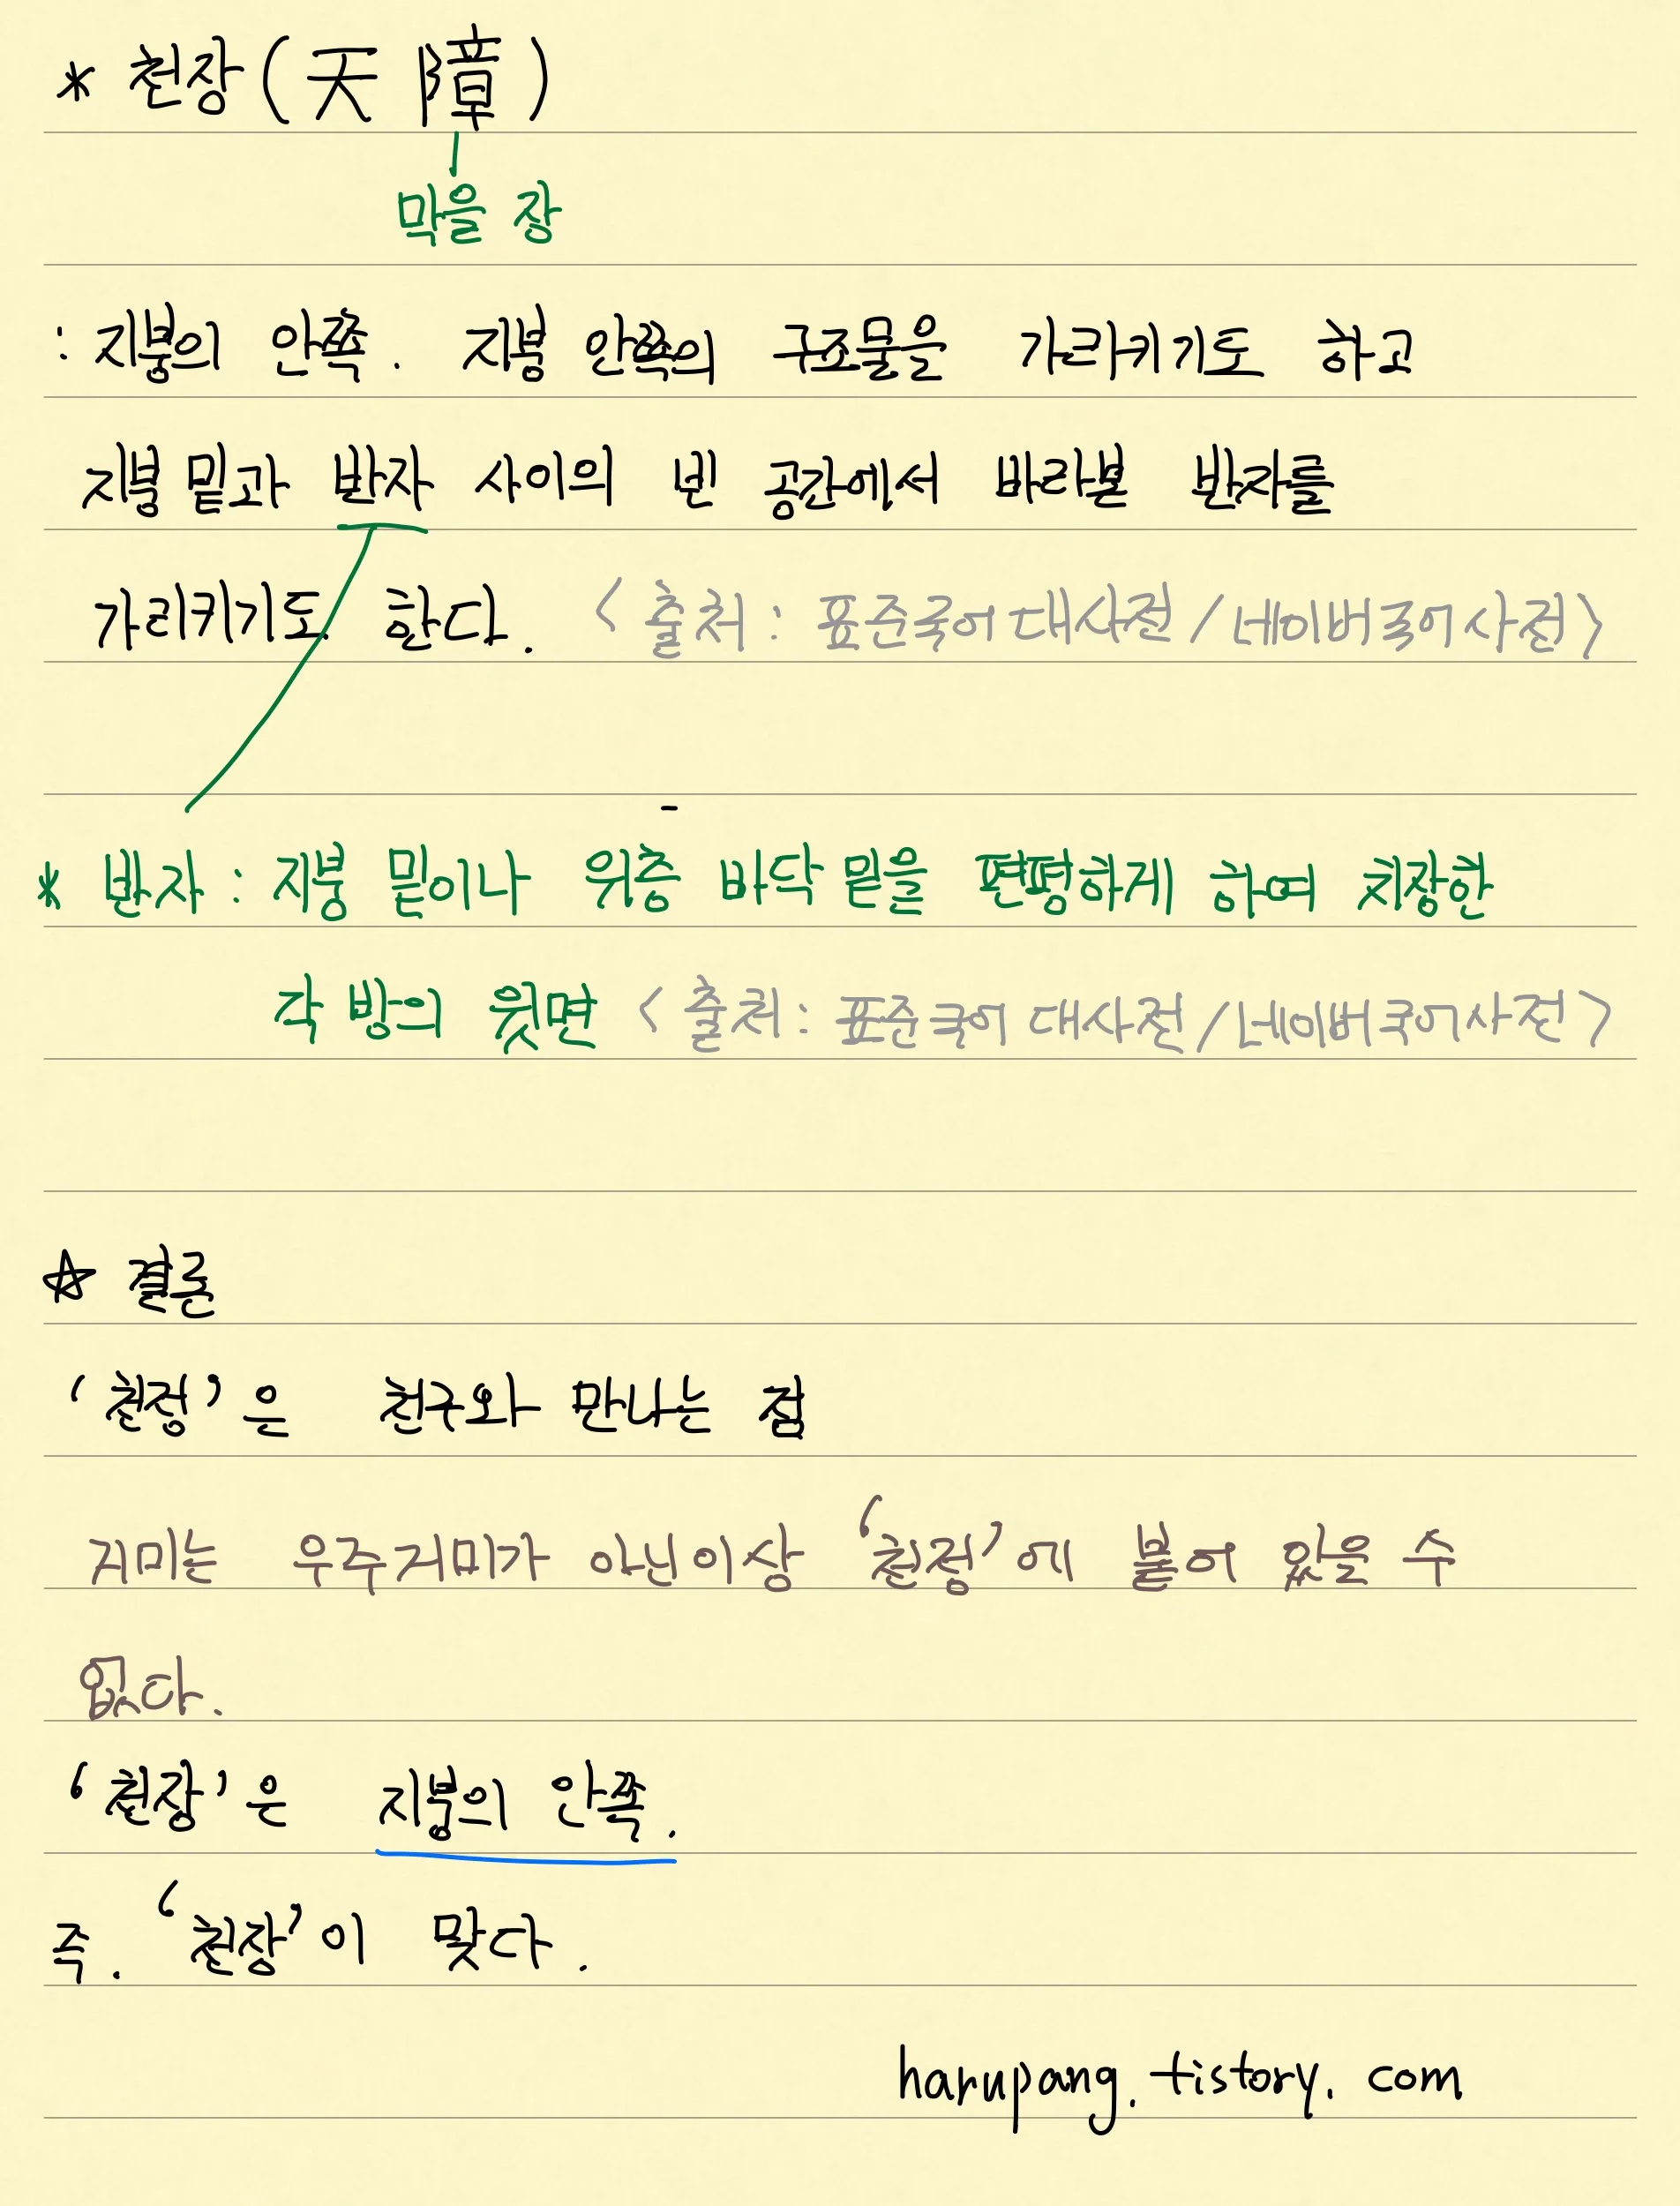 * 천장(天障)
막을 장
: 지붕의 안쪽. 지붕 안쪽의 구조물을 가리키기도 하고
지붕 밑과 반자 사이의 빈 공간에서 바라본 반자를
가리키기도 한다. <출처: 표준국어대사전/네이버국어사전>
* 반자 : 지붕 밑이나 위층 바닥 밑을 편평하게 하여 치장한
각 방의 윗면 <출처: 표준국어대사전/네이버국어사전>
☆ 결론
'천정'은 천구와 만나는 점
거미는 우주거미가 아닌이상 '천정'에 붙어 있을 수
없다.
'천장'은 지붕의 안쪽.
즉. '천장'이 맞다.
harupang.tistory.com